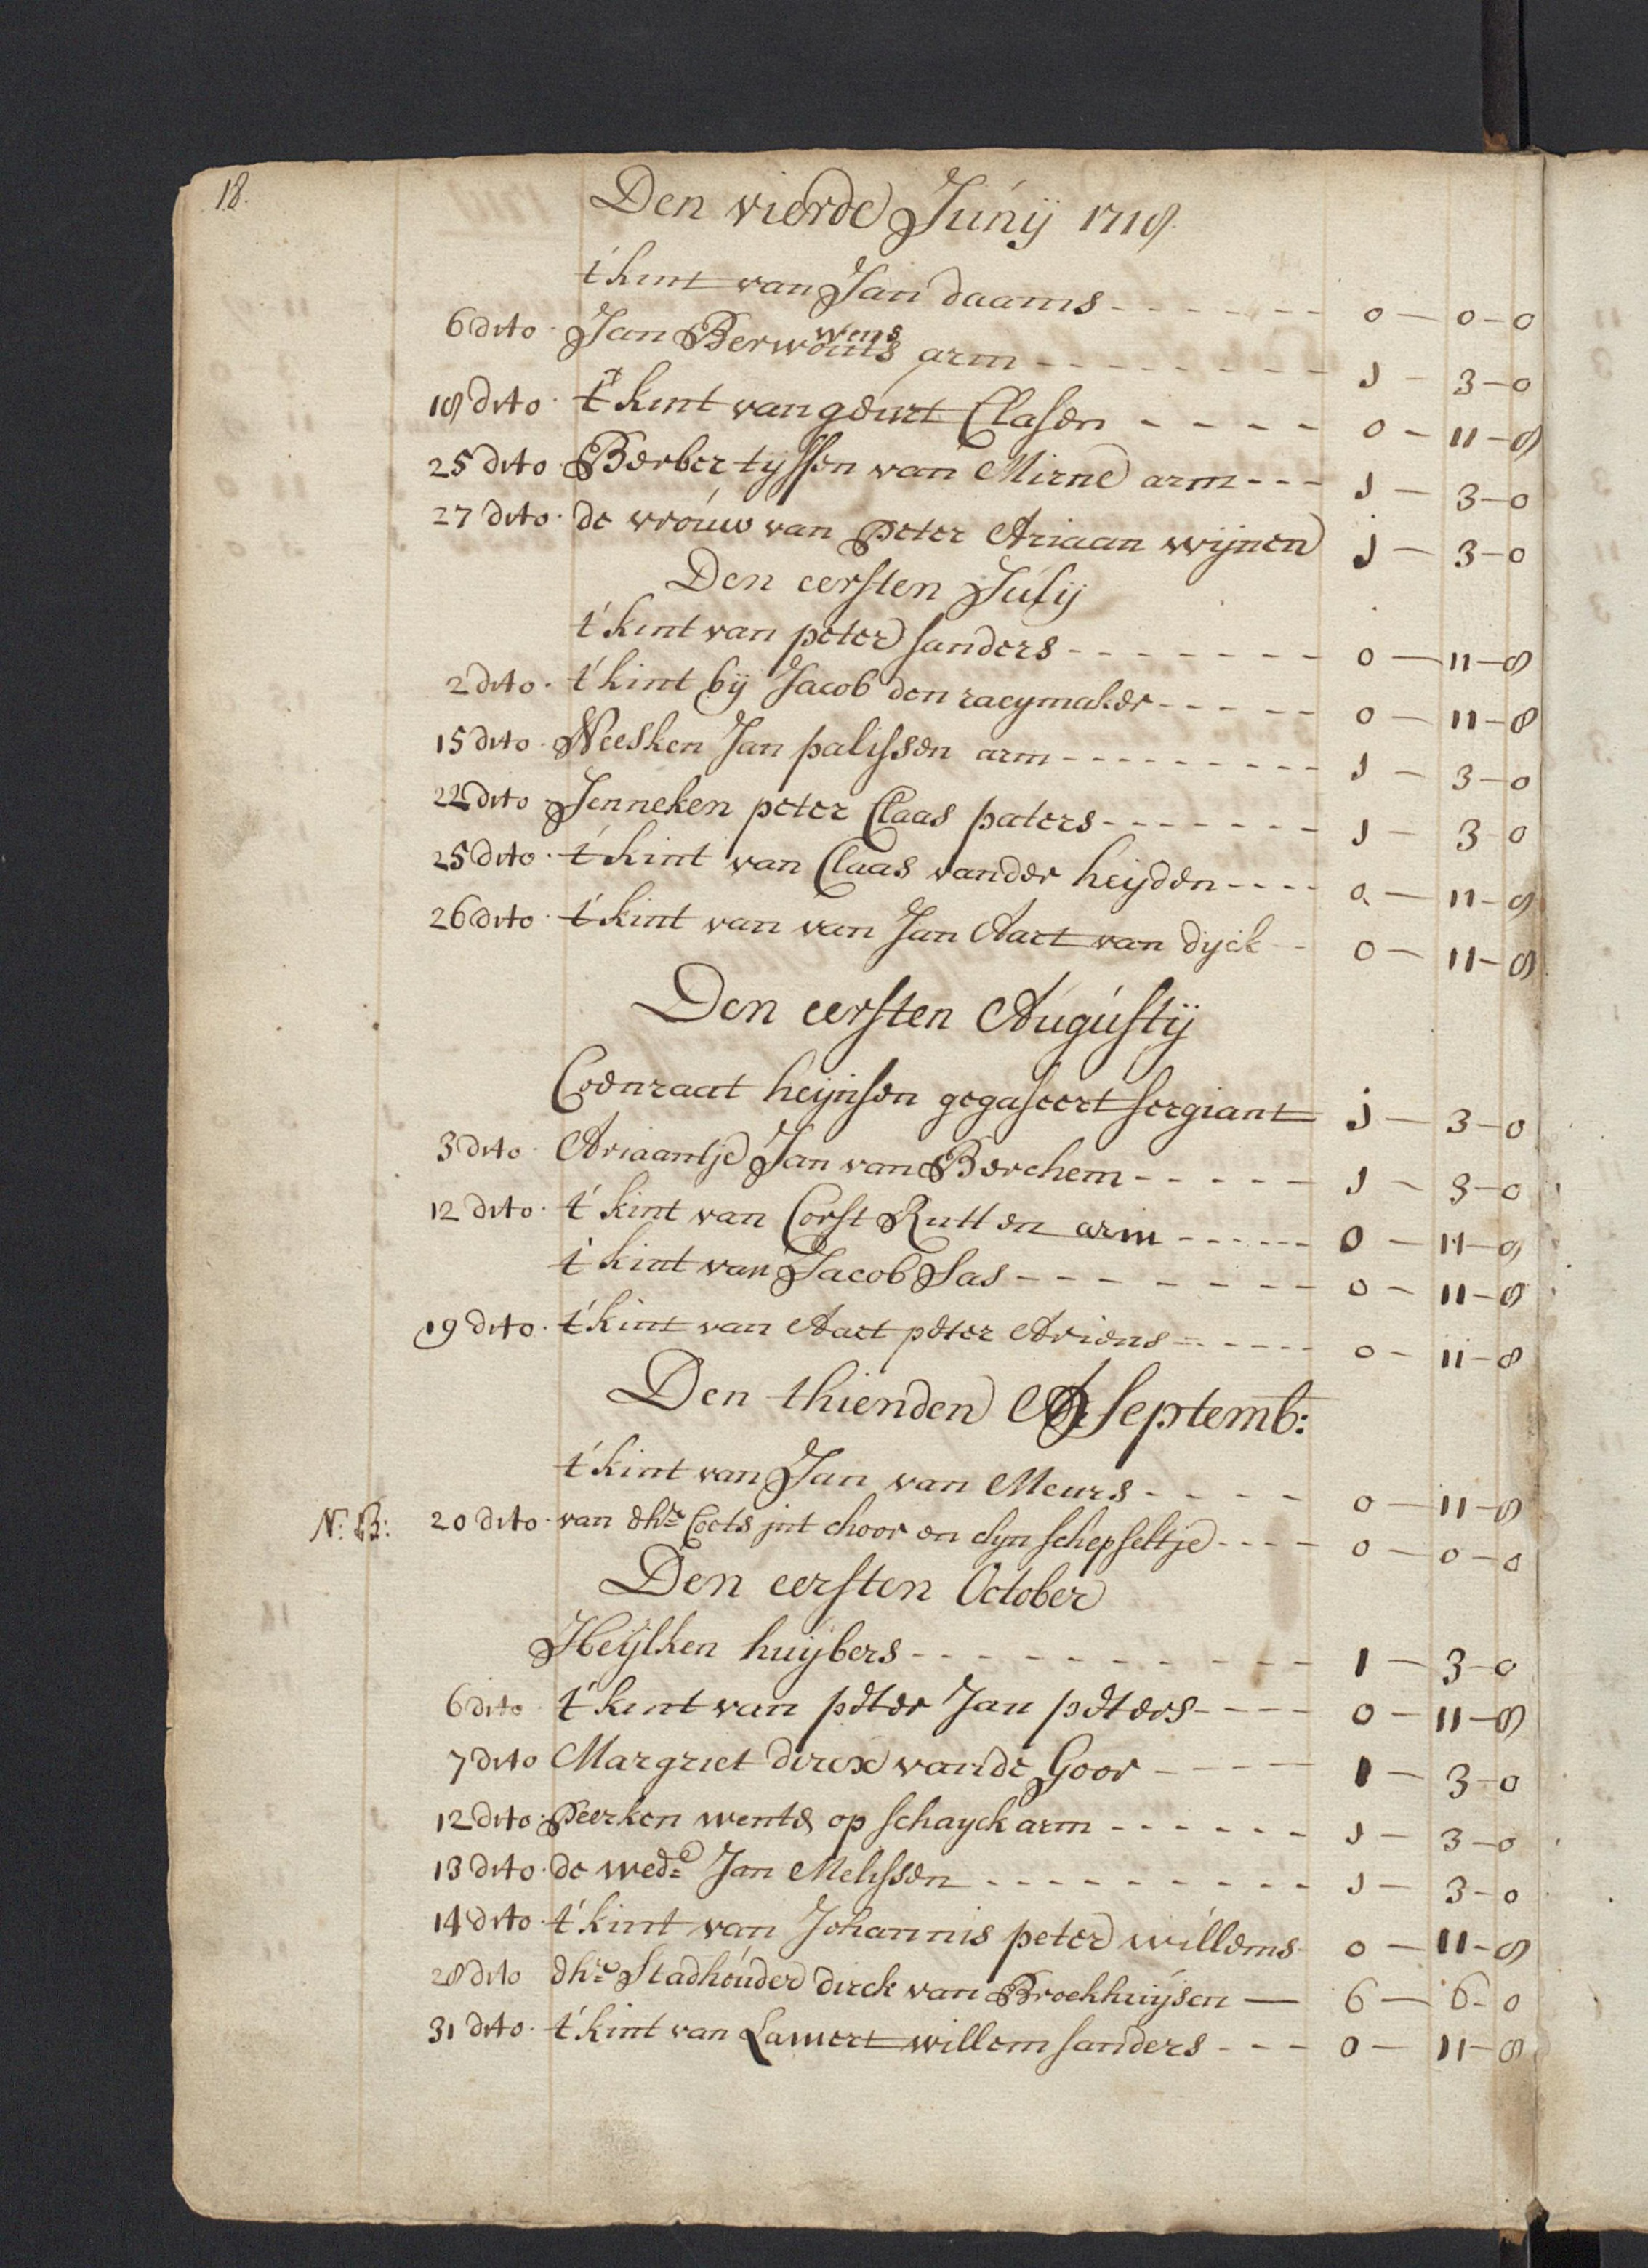 18.
Den vierde Junij 1718
t'kint van Jan daams - - - - - - 0 — 0 - 0
6 dito Jan Berwouts wens arm - - - - - - - - 1 - 3 - 0
18 dito t'kint van geurt Clasen - - - - 0 - 11 - 8
25 dito Berber tijssen van Mirne arm - - - 1 — 3 - 0
27 dito de vrouw van Peter Ariaan wijnen j — 3 - 0
Den eersten Julij
t'kint van peter sanders - - - - - - - 0 — 11 - 8
2 dito t'kint bij Jacob den raeymaker - - - - - 0 — 11 - 8
15 dito Neesken Jan palissen arm - - - - - - - - - 1 - 3 - 0
22 dito Jenneken peter Claas paters - - - - - - - 1 - 3 - 0
25 dito t'kint van Claas vander heijden - - - - 0 — 11 - 8
26 dito t'kint van van Jan Aart van dijck - - 0 — 11 - 8
Den eersten Augustij
Coenraat heijnsen gegaseert sergiant j — 3 - 0
3 dito Ariaantje Jan van Berchem - - - - - 1 - 3 - 0
12 dito t'kint van Corst Rutten arm - - - - - - 0 - 11 - 8
t'kint van Jacob Sas - - - - - - - - 0 - 11 - 8
19 dito t'kint van Aart peter Ariens - - - - - - 0 - 11 - 8
Den thienden Septemb:
t'kint van Jan van Meurs - - - - 0 — 11 - 8
N: B: 20 dito van dhr Coets int choor en clyn schepseltje - - - - 0 — 0 - 0
Den eersten October
Heylken huijbers - - - - - - - - - - - 1 — 3 - 0
6 dito t'kint van peter Jan peters - - - - 0 - 11 - 8
7 dito Margriet dircx vande Goor - - - - 1 — 3 - 0
12 dito Peerken wents op schayck arm - - - - - - 1 - 3 - 0
13 dito de wede Jan Melissen - - - - - - - - - 1 — 3 - 0
14 dito t'kint van Johannis peter willems 0 — 11 - 8
28 dito dhr Stadhouder dirck van Broekhuijsen — 6 — 6 - 0
31 dito t'kint van Lamert willem sanders - - - 0 — 11 - 8